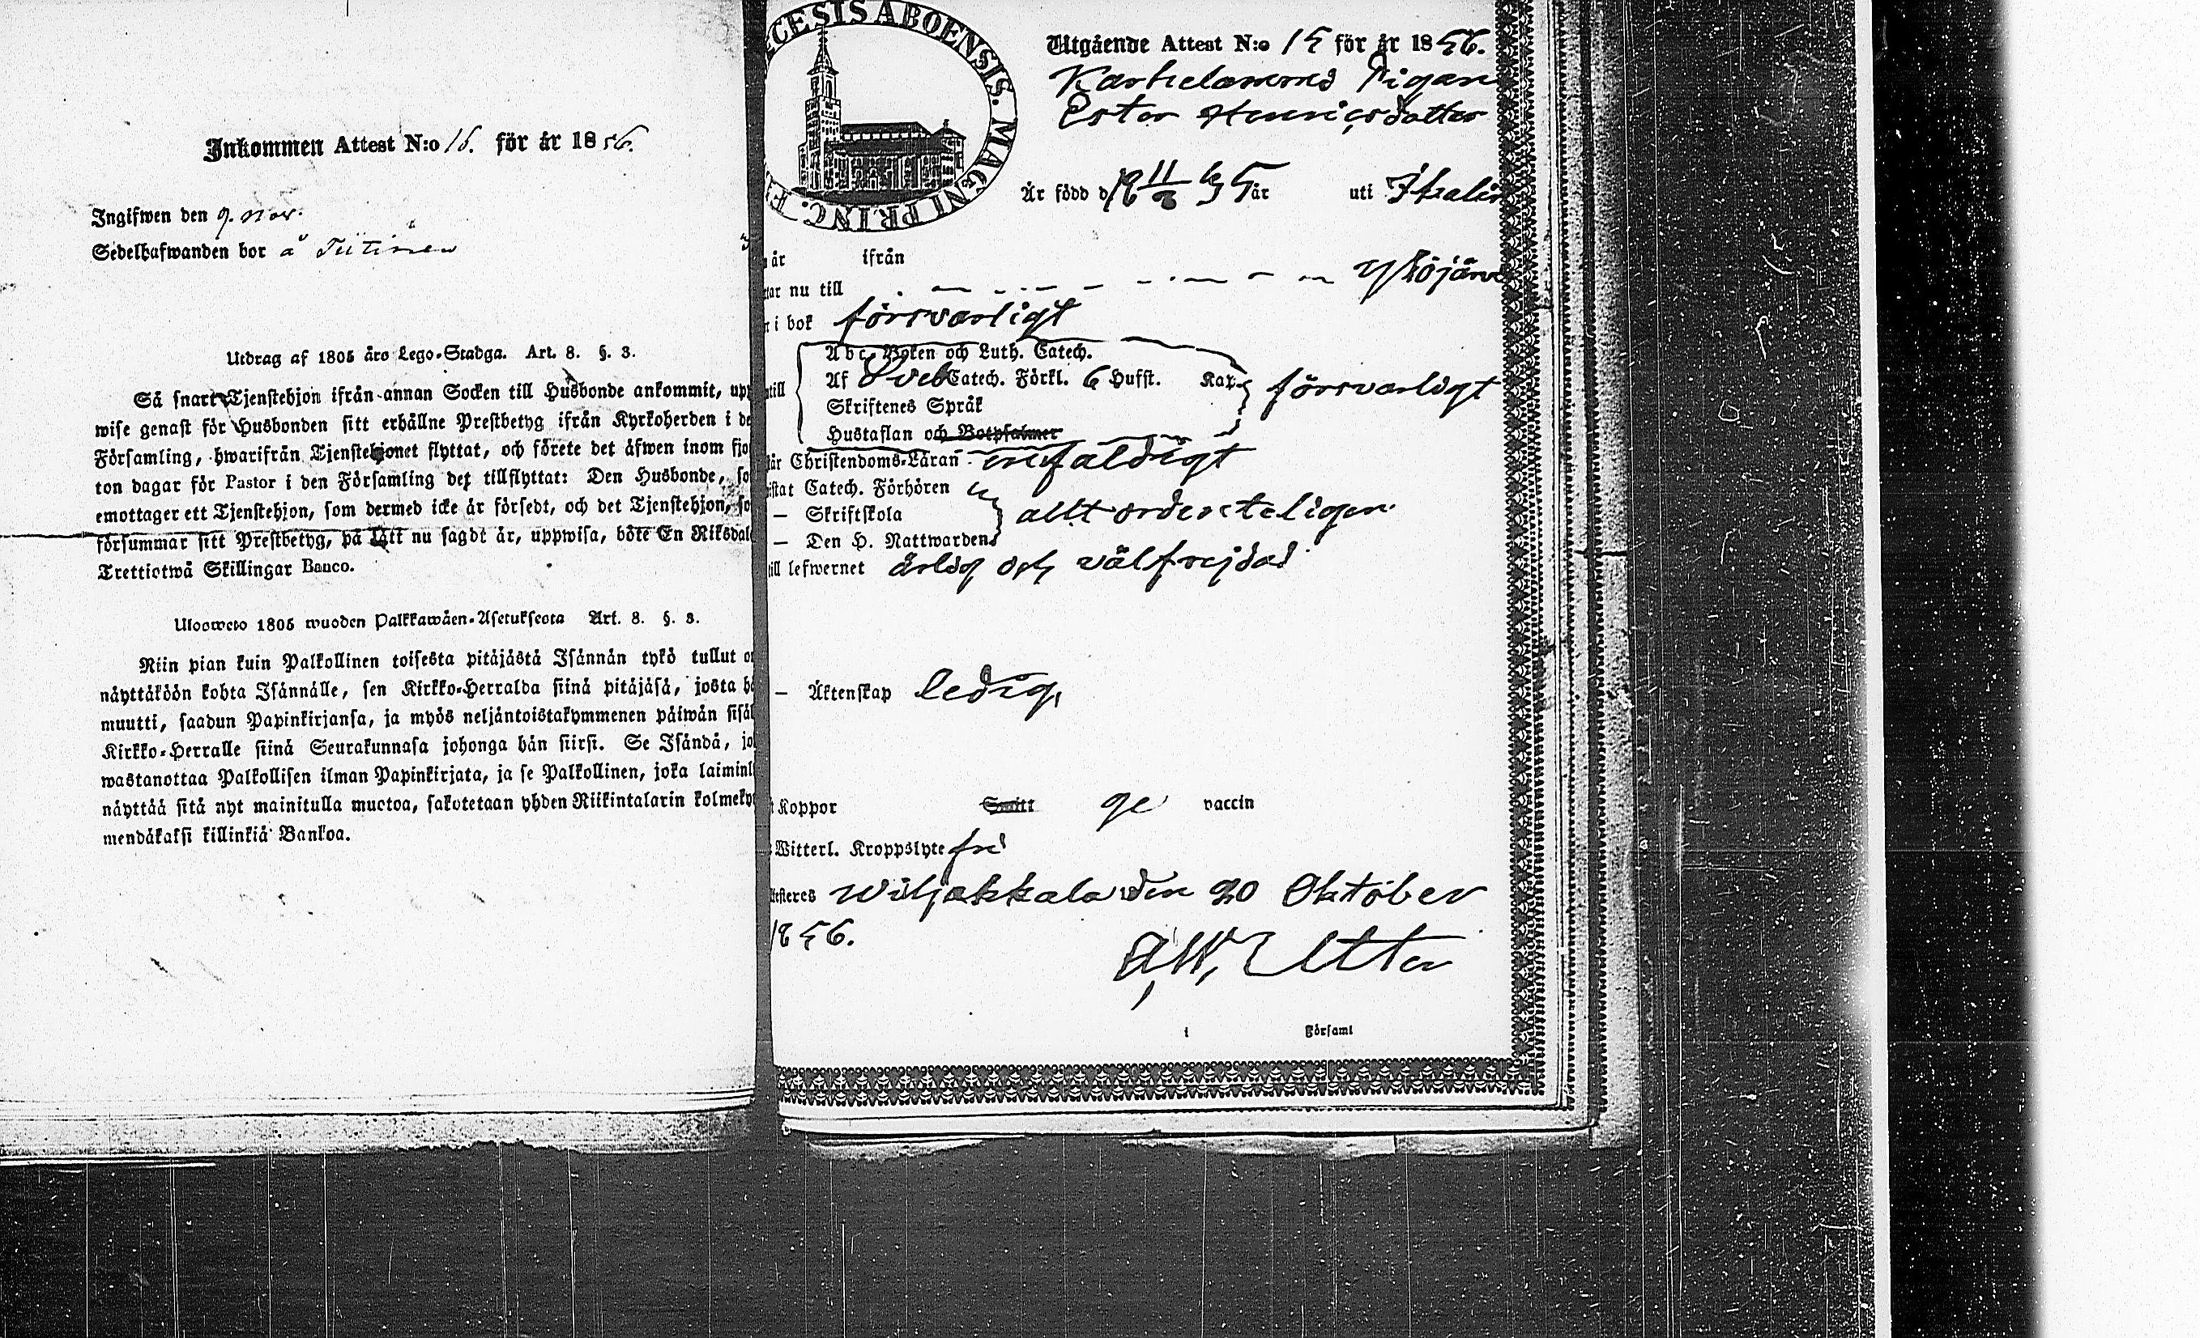 Inkommen Attest N:o 16. för år 1856.
Ingifwen den 9. Nov.
Sedelhafwanden bor å
Utdrag af 1805 års Lego-Stadga. Art. 8. §. 3.
Så snart Tjenstehjon ifrån annan Socken till Husbonde ankommit, upp
wise genast för Husbonden sitt erhållne Prestbetyg ifrån Kyrkoherden i de
Församling, hwarifrån Tjenstehjonet flyttat, och förete det äfwen inom fjo
ton dagar för Pastor i den Församling det tillflyttat: Den Husbonde, so
emottager ett Tjenstehjon, som dermed icke är försedt, och det Tjenstehjon, so
försummar sitt Prestbetyg, på sätt nu sagdt är, uppwisa, böte En Riksdal
Trettiotwå Skillingar Banco.
Ulosweto 1805 wuoden Palkkawäen-Asetuksesta Art. 8. §. 3.
Niin pian kuin Palkollinen toisesta pitäjästä Isännän tykö tullut o
näyttäköön kohta Isännälle, sen Kirkko-Herralda siinä pitäjäsä, josta hä
muutti, saadun Papinkirjansa, ja myös neljäntoistakymmenen päiwän sisäl
Kirkko-Herralle siinä Seurakunnasa johonga hän siirsi. Se Isändä, jo
wastanottaa Palkollisen ilman Papinkirjata, ja se Palkollinen, joka laiminl
näyttää sitä nyt mainitulla muotoa, sakotetaan yhden Riikintalarin kolmeky
mendäkaksi killinkiä Bankoa.
CESIS ABOENSIS. MAGNI PRINC. F
Utgående Attest N:o 15 för år 1856.
Karhelamms Pigan
Ester Henricsdotter
Är född d 18 11/8 35 år uti Ikalis
år ifrån
tar nu till Ylöjärvi
i bok försvarligt
Abc-Boken och Luth. Catech.
till Af Sveb Catech. Förkl. 6 Hufst. Kap. försvarligt
Skriftenes Språk
Hustaflan och Botpsalmer
lär Christendoms-Läran enfaldigt
istat Catech. Förhören
— Skriftskola allt ordenteligen
— Den H. Nattwarden
till lefwernet ärlig och välfrejdad
— Äktenskap ledig,
Koppor Smitt ge vaccin
Witterl. Kroppslyte fri
testeres Wiljakkala den 20 Oktober
1856.
A. W. Etter
i Förfaml